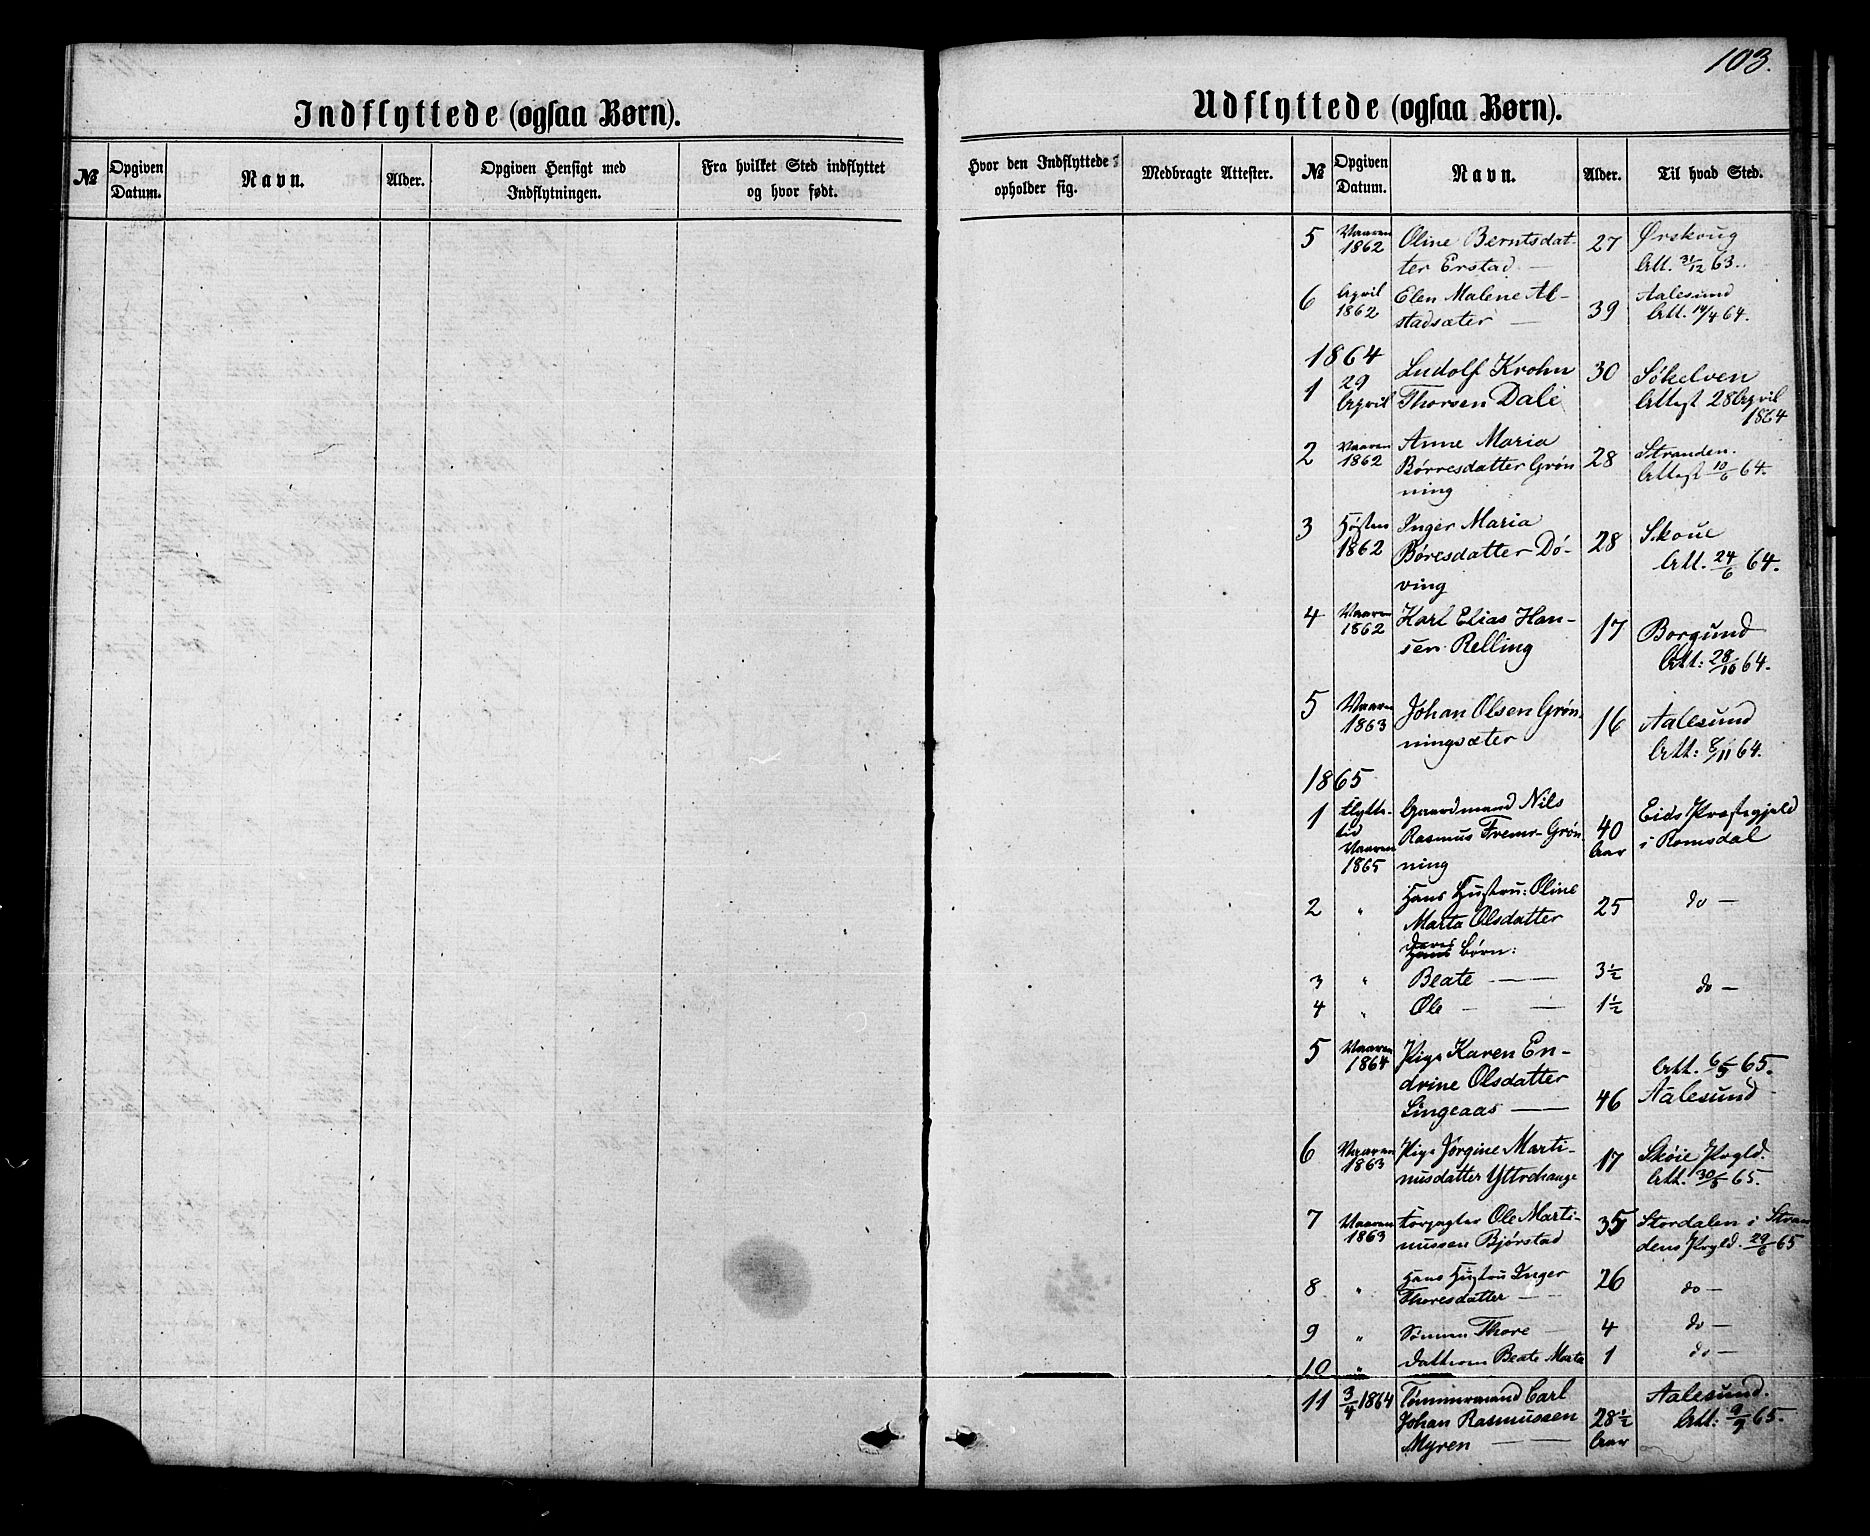 103.
Indflyttede (ogsaa Børn).
Udflyttede (ogsaa Børn).
№
Opgiven Datum.
Navn.
Alder.
Opgiven Hensigt med Indflytningen.
Fra hvilket Sted indflyttet og hvor født.
Hvor den Indflyttede opholder sig.
Medbragte Attester.
№
Opgiven Datum.
Navn.
Alder.
Til hvad Sted.
5 Vaaren Oline Berntsdat- 27 Ørskoug
1862 ter Erstad — Att. 31/12 63.
6 April Elen Malene Al- 39 Aalesund
1862 stadsæter — Att. 14/4 64.
1864
1 29 Ludolf Krohn 30 Søkelven
April Thorsen Dale Attest 28 April
1864
2 Vaaren Anne Maria 28 Stranden.
1862 Børresdatter Grøn Attest 10/6 64.
ning
3 Høsten Inger Maria 28 Skoue
1862 Børesdatter Dø- Att. 24/6 64.
ving
4 Vaaren Karl Elias Han- 17 Borgund
1862 sen Relling Att: 28/10 64.
5 Vaaren Johan Olsen Grøn- 16 Aalesund
1863 ningsæter Att: 8/11 64.
1865
1 Flytte- Gaardmand Nils 40 Eids Præstegjeld
tid Rasmus Fremr-Grøn Aar i Romsdal
Vaaren ning
1865
2 " Hans Hustru: Oline 25 do —
Marta Olsdatter
Deres
Hans børn:
3 " Beate — 3½ do —
4 " Ole — 1½
5 Vaaren Pige Karen En- Att. 6/5 65.
1864 drine Olsdatter
Lingeaas — 46 Aalesund
6 Vaaren Pige Jørgine Marti- 17 Skøie Prgld.
1863 nusdatter Yttrehauge Att. 30/5 65.
7 Vaaren Ole Marti- 35 Stordalen i Stran
1863 nussen Bjørstad dens Prgld. 29/6 65
8 " Hans Hustru Inger 26 do —
Thoresdatter —
9 " Sønnen Thore — 4 do —
10 " Datteren Beate Marta 1 do —
11 3/4 1864 Tømmermand Carl Aalesund.
Johan Rasmussen 28½ Att: 9/9 65.
Myren — Aar